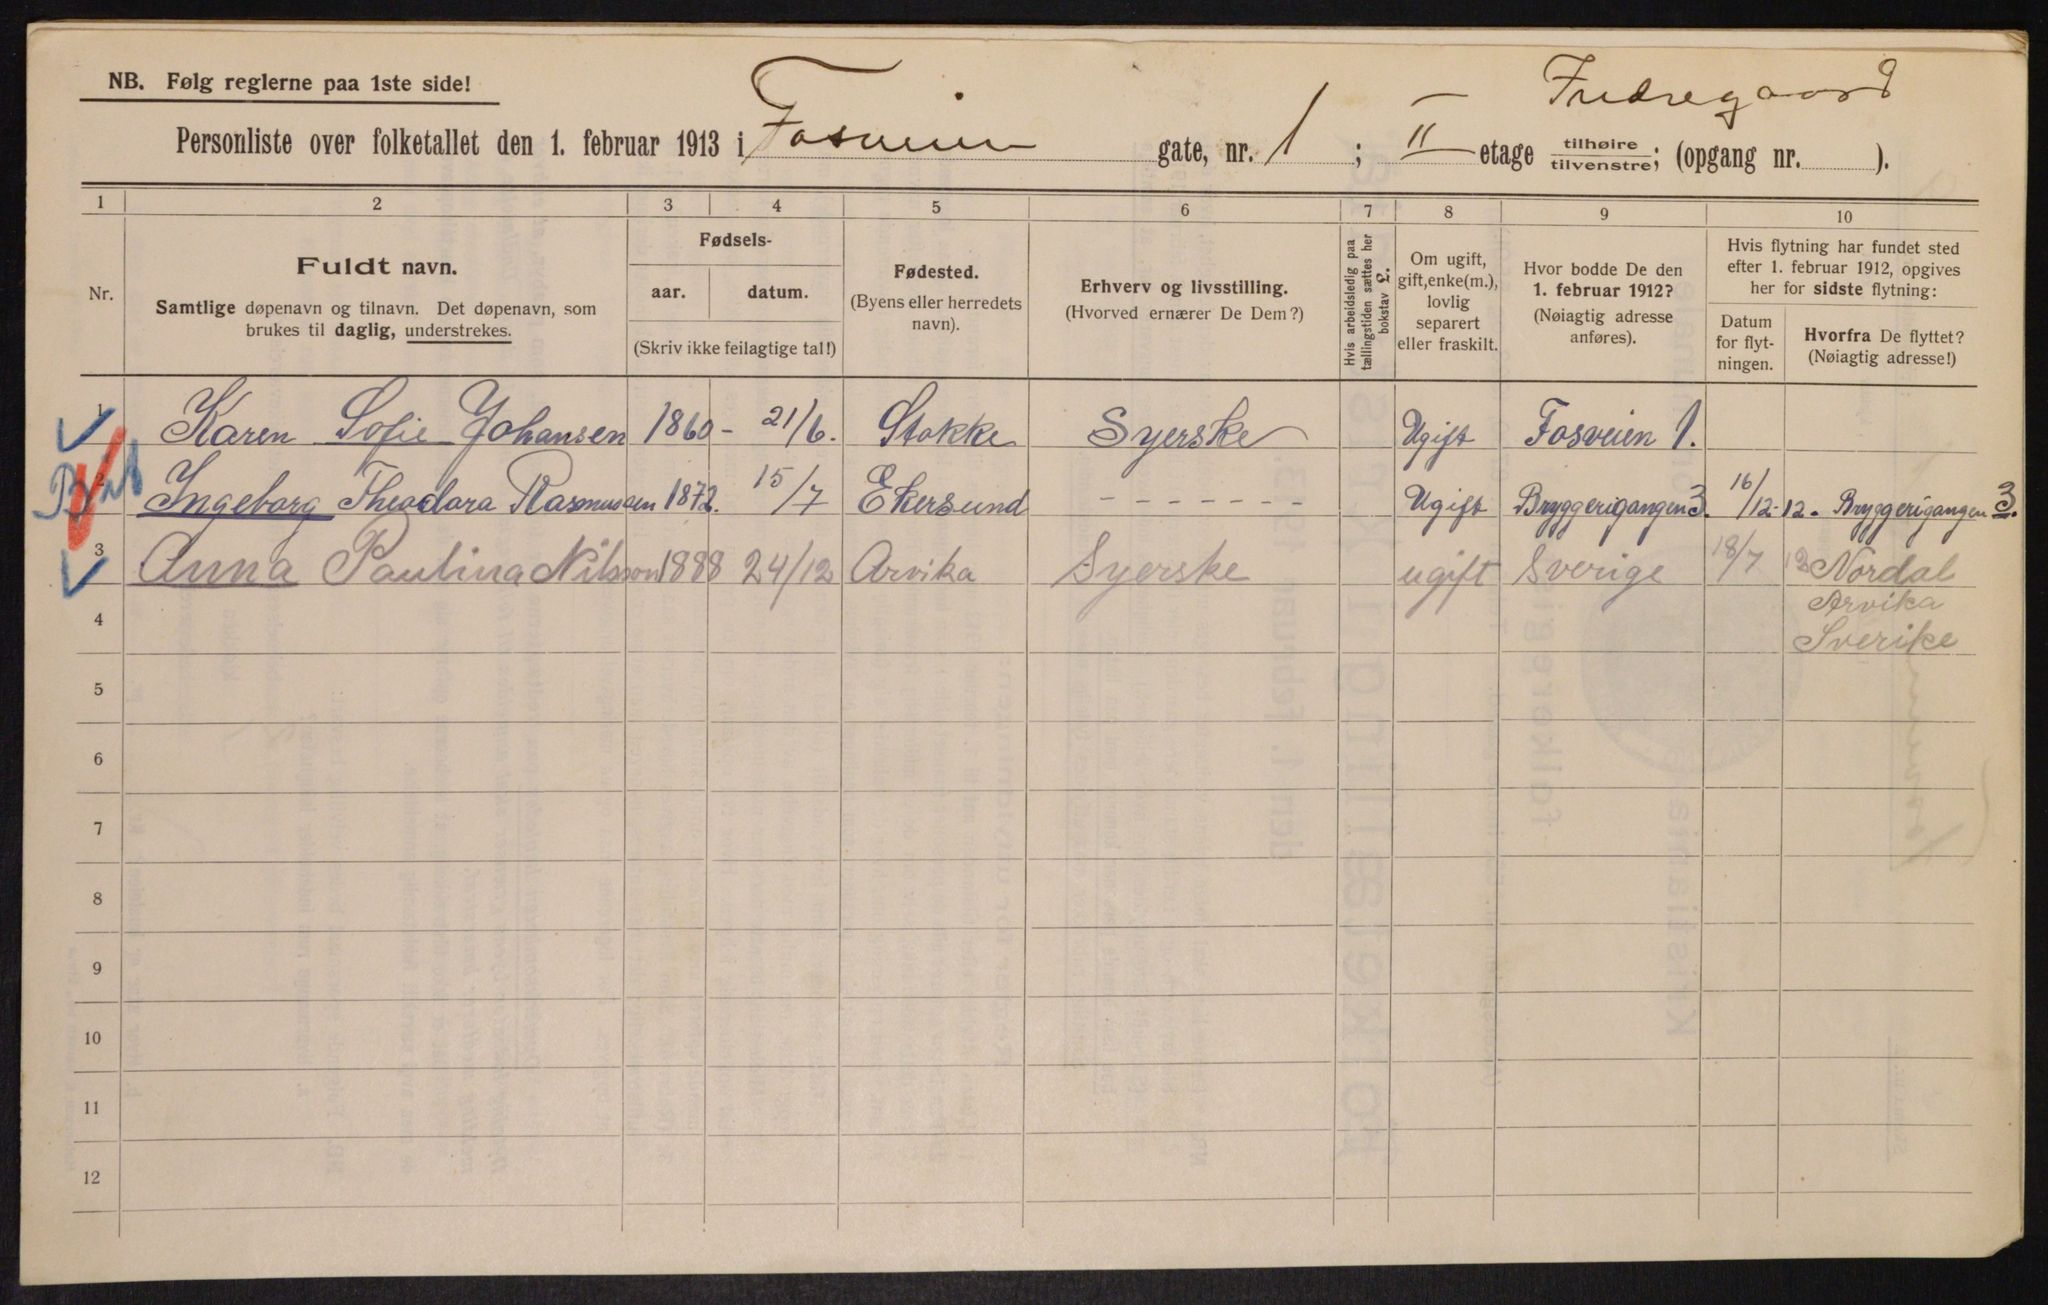 NB. Følg reglerne paa 1ste side!
Personliste over folketallet den 1. februar 1913 i Fosveien gate, nr. 1; II etage tilhøire/tilvenstre; (opgang nr. ).
1 2 3 4 5 6 7 8 9 10
Nr.
Fuldt navn.
Samtlige døpenavn og tilnavn. Det døpenavn, som
brukes til daglig, understrekes.
Fødsels-
aar. datum.
(Skriv ikke feilagtige tal!)
Fødested.
(Byens eller herredets
navn).
Erhverv og livsstilling.
(Hvorved ernærer De Dem?)
Hvis arbeidsledig paa
tællingstiden sættes her
bokstav L.
Om ugift,
gift, enke(m.),
lovlig
separert
eller fraskilt.
Hvor bodde De den
1. februar 1912?
(Nøiagtig adresse
anføres).
Hvis flytning har fundet sted
efter 1. februar 1912, opgives
her for sidste flytning:
Datum
for flyt-
ningen.
Hvorfra De flyttet?
(Nøiagtig adresse!)
1 Karen Sofie Johansen 1860 - 21/6. Stokke Syerske Ugift Fosveien 1.
2 Ingeborg Theodora Rasmussen 1872. 15/7 Ekersund - - - - - - - Ugift Bryggerigangen 3. 16/12-12. Bryggerigangen 3.
3 Anna Paulina Nilsson 1888 24/12 Arvika Syerske ugift Sverige 18/7 12 Nordal
4 Arvika
Sverike
5
6
7
8
9
10
11
12